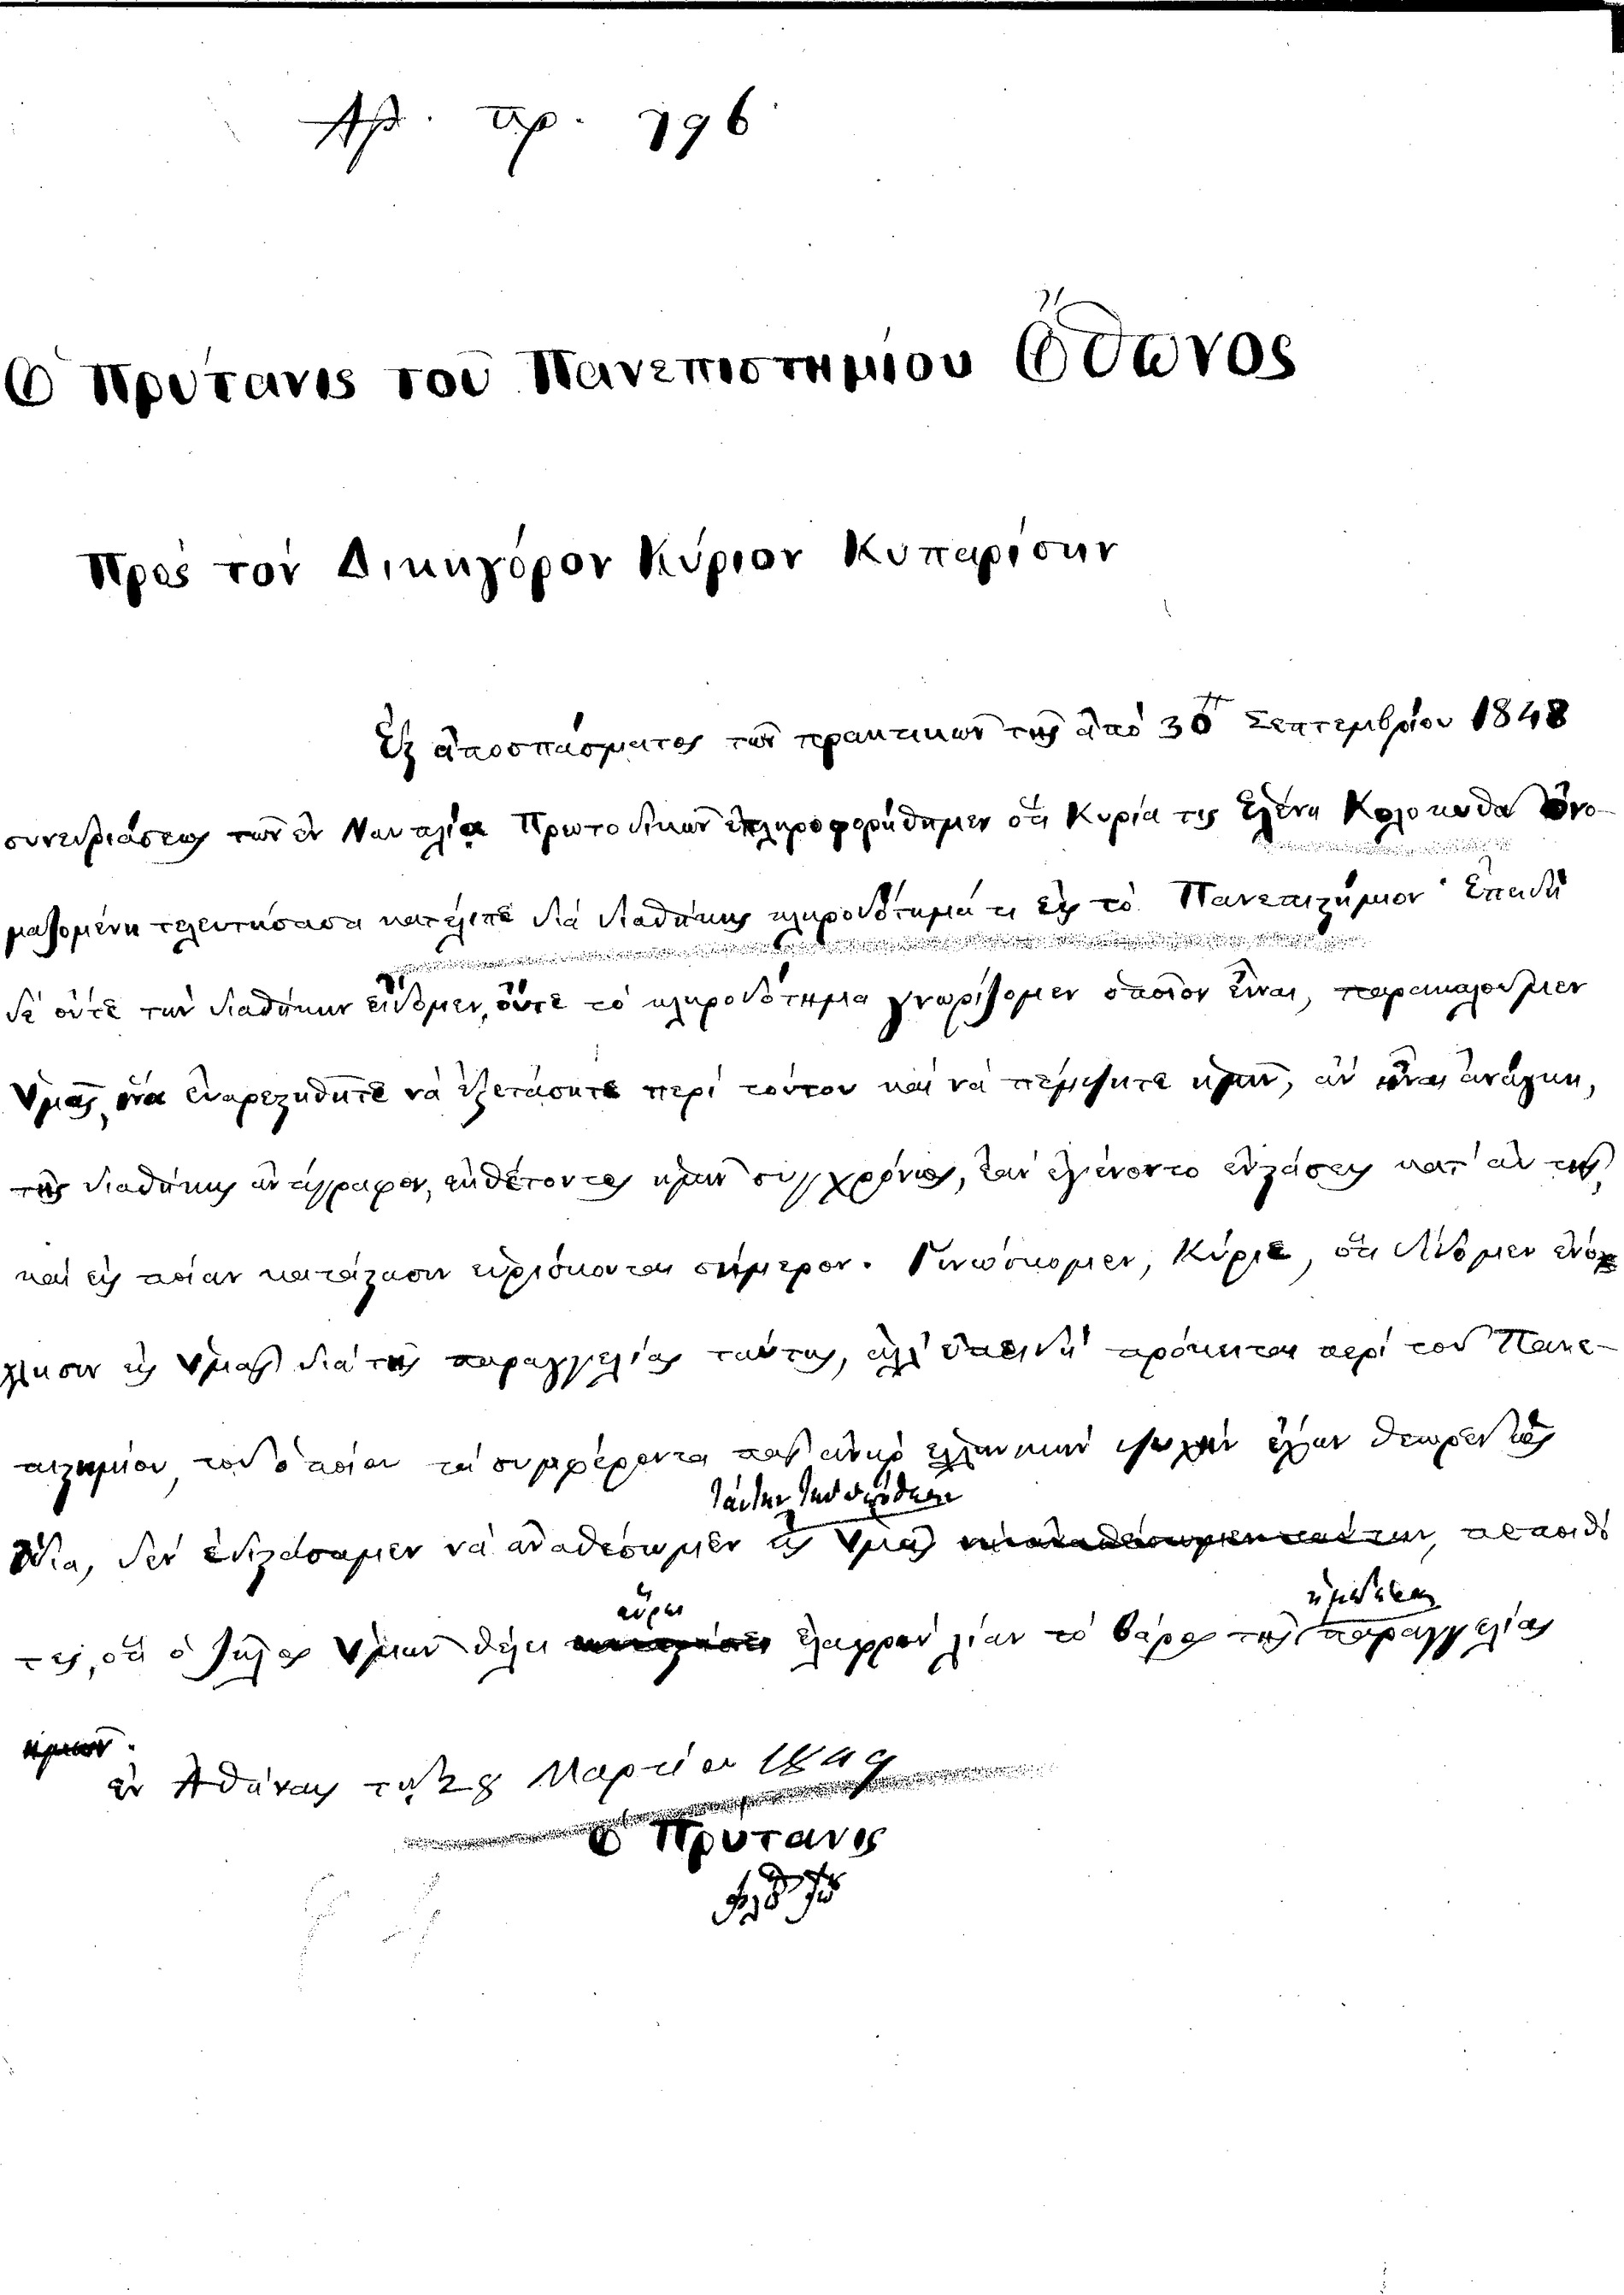 Αρ. πρ. 796
Ὁ Πρύτανις τοῦ Πανεπιστημίου Ὄθωνος
Πρὸς τὸν Δικηγόρον Κύριον Κυπαρίσην
Ἐξ ἀποσπάσματος τῶν πρακτικῶν τῆς ἀπὸ 30 Σεπτεμβρίου 1848
συνεδριάσεως τῶν ἐν Ναυπλίᾳ Πρωτοδικῶν ἐπληροφορήθημεν ὅτι Κυρία τις Ἑλένη Κολοκυθᾶ ὀνο-
μαζομένη τελευτήσασα κατέλιπε διὰ διαθήκης κληροδότημά τι εἰς τὸ Πανεπιστήμιον· Ἐπειδὴ
δὲ οὔτε τὴν διαθήκην εἴδομεν, οὔτε τὸ κληροδότημα γνωρίζομεν ὁποῖον εἶναι, παρακαλοῦμεν
Ὑμᾶς, ἵνα εὐαρεστηθῆτε νὰ ἐξετάσητε περὶ τούτου καὶ νὰ πέμψητε ἡμῖν, ἂν ἦναι ἀνάγκη,
τῆς διαθήκης ἀντίγραφον, ἐκθέτοντες ἡμῖν συγχρόνως, ἐὰν ἐγένοντο ἐνστάσεις κατ' αὐτῆς,
καὶ εἰς ποίαν κατάστασιν εὑρίσκονται σήμερον. Γινώσκομεν, Κύριε, ὅτι δίδομεν ἐνόχ
λησιν εἰς Ὑμᾶς διὰ τῆς παραγγελίας ταύτης, ἀλλ' ἐπειδὴ πρόκειται περὶ τοῦ Πανε-
πιστημίου, τοῦ ὁποίου τὰ συμφέροντα πᾶς ἀνὴρ ἑλληνικὴν ψυχὴν ἔχων θεωρεῖ ὡς
ἴδια, δὲν ἐδιστάσαμεν νὰ ἀναθέσωμεν εἰς Ὑμᾶς ταύτην τὴν ὑπόθεσιν, πεποιθό
τες, ὅτι ὁ ζῆλος Ὑμῶν θέλει εὕρει ἐλαφρὸν λίαν τὸ βάρος τῆς ἡμετέρας παραγγελίας
ἡμῶν.
ἐν Ἀθήναις τῇ 28 Μαρτίου 1849
Ὁ Πρύτανις